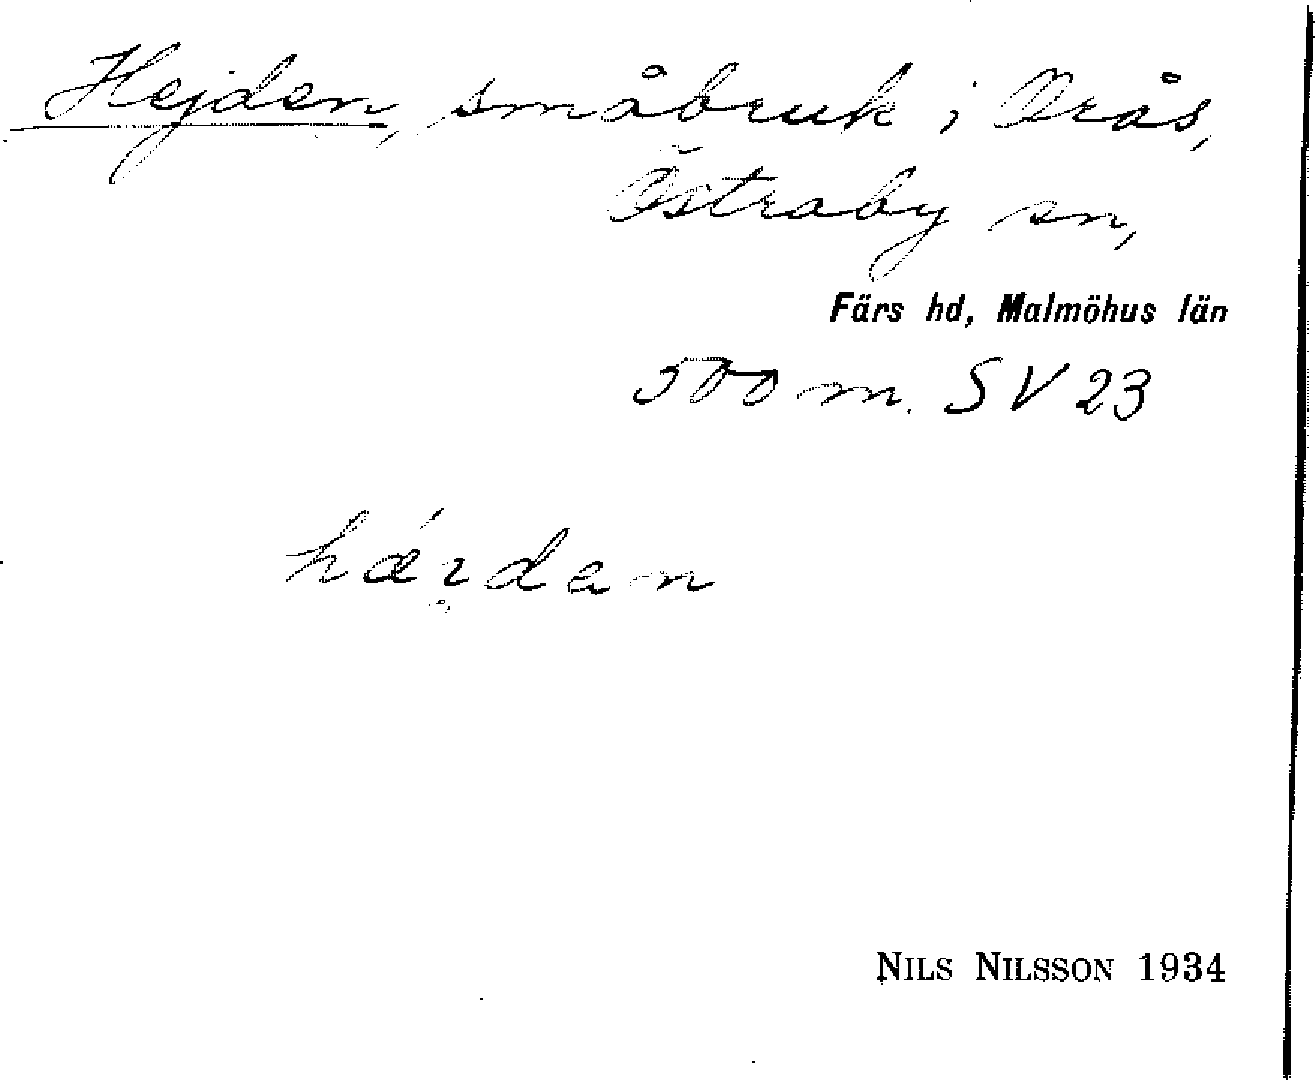 Hejden, småbruk i Orås,
Östraby sn,
Färs hd, Malmöhus län
500 m. SV 23
NILS NILSSON 1934